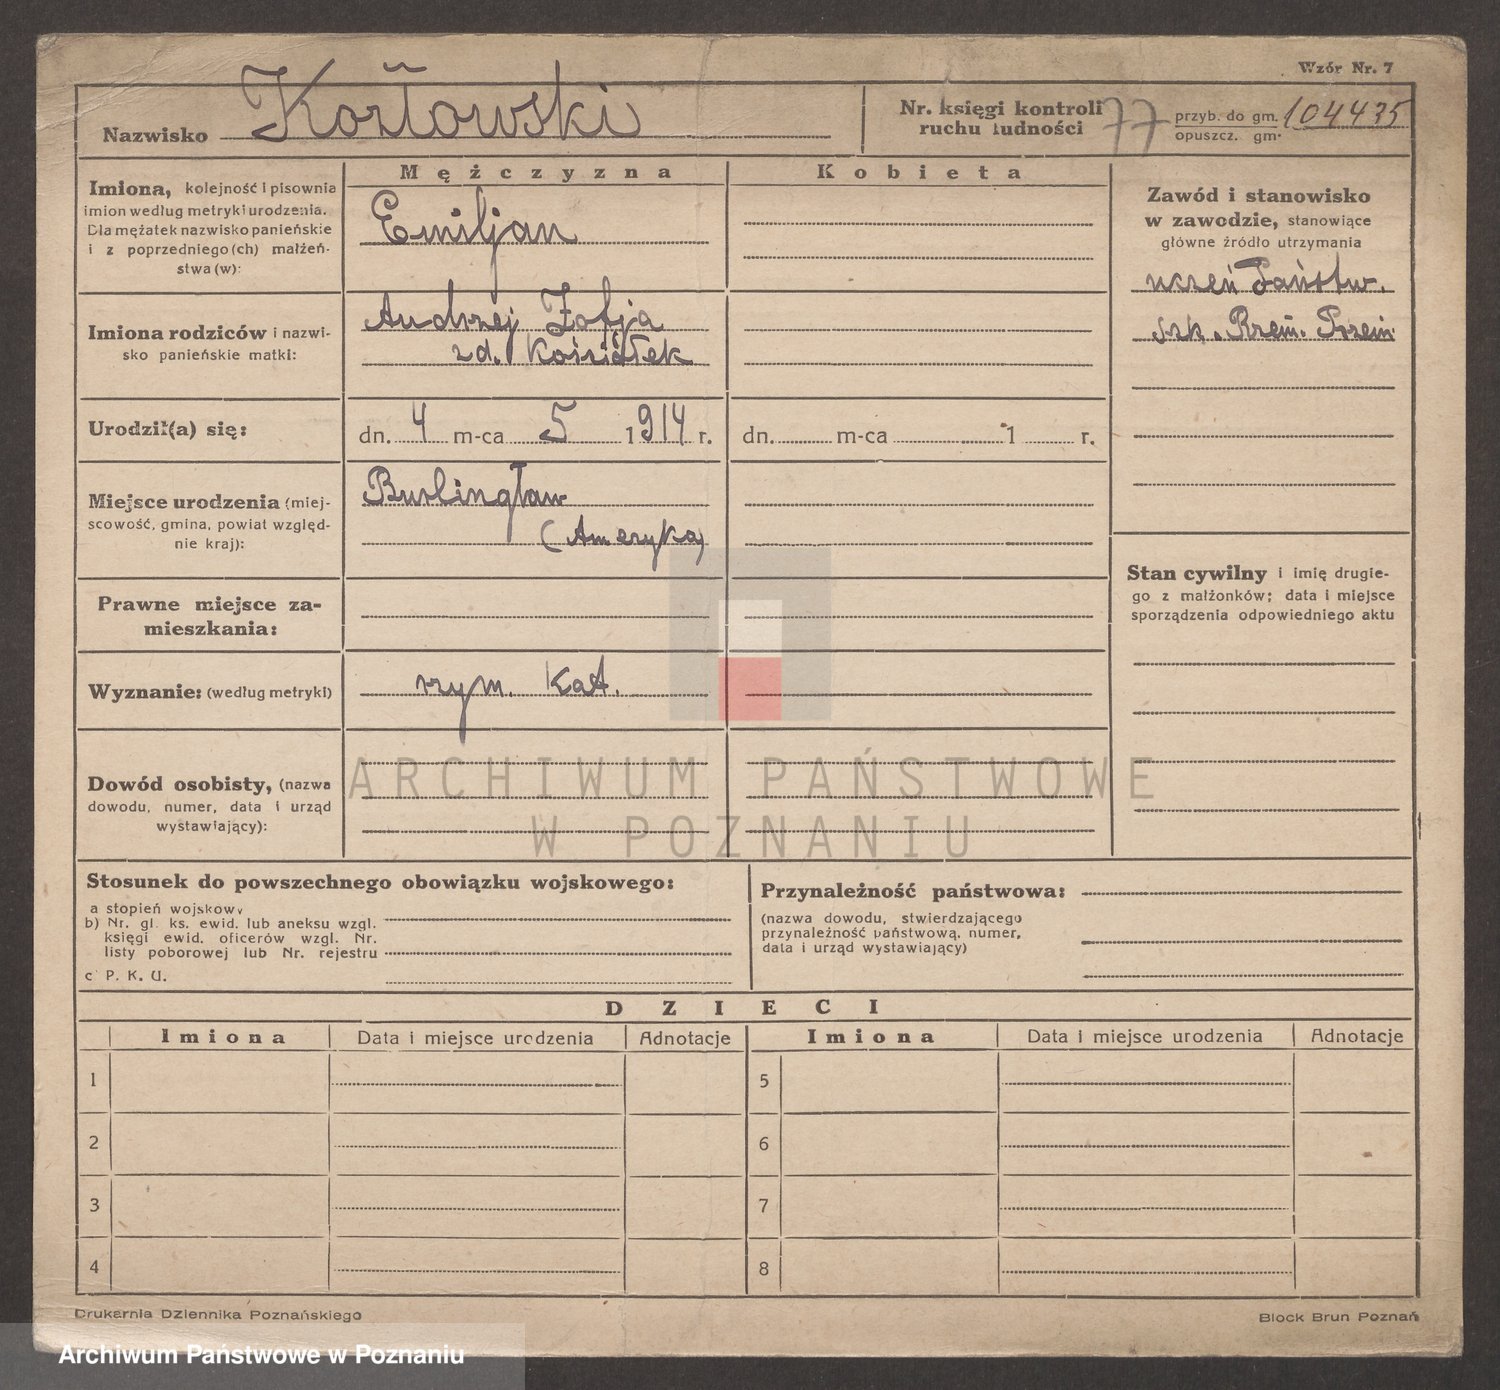 Wzór Nr. 7
Nazwisko Kozłowski
Nr. księgi kontroli ruchu ludności 77 przyb. do gm. 104435
opuszcz. gm.
Mężczyzna
Kobieta
Imiona, kolejność i pisownia
imion według metryki urodzenia.
Dla mężatek nazwisko panieńskie
i z poprzedniego (ch) małżeń-
stwa (w):
Emiljan
Imiona rodziców i nazwi-
sko panieńskie matki:
Andrzej Zofja
zd. Kośriałek
Urodził(a) się:
dn. 4 m-ca 5 1914 r.
dn. m-ca 1 r.
Miejsce urodzenia (miej-
scowość, gmina, powiat względ-
nie kraj):
Burlingtaw
(Ameryka)
Prawne miejsce za-
mieszkania:
Wyznanie: (według metryki)
rzym. Kat.
Dowód osobisty, (nazwa
dowodu, numer, data i urząd
wystawiający):
Zawód i stanowisko
w zawodzie, stanowiące
główne źródło utrzymania
uczeń Państw.
Szk. Rzem. Przem
Stan cywilny i imię drugie-
go z małżonków; data i miejsce
sporządzenia odpowiedniego aktu
ARCHIWUM PAŃSTWOWE
W POZNANIU
Stosunek do powszechnego obowiązku wojskowego:
a stopień wojskowy
b) Nr. gl. ks. ewid. lub aneksu wzgl.
księgi ewid. oficerów wzgl. Nr.
listy poborowej lub Nr. rejestru
c P. K. U.
Przynależność państwowa:
(nazwa dowodu, stwierdzającego
przynależność państwową, numer,
data i urząd wystawiający)
DZIECI
Imiona Data i miejsce urodzenia Adnotacje Imiona Data i miejsce urodzenia Adnotacje
1 5
2 6
3 7
4 8
Drukarnia Dziennika Poznańskiego
Block Brun Poznań
Archiwum Państwowe w Poznaniu